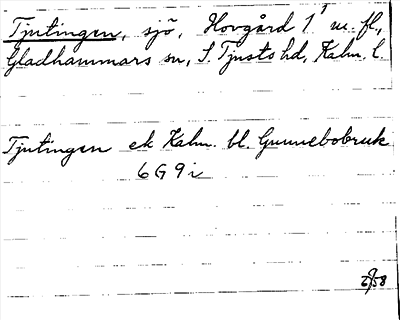 Tjutingen, sjö, Hovgård 1¹ m. fl.,
Gladhammars sn, S. Tjusts hd, Kalm. l.
Tjutingen ek Kalm. bl. Gunnebobruk
6G9i